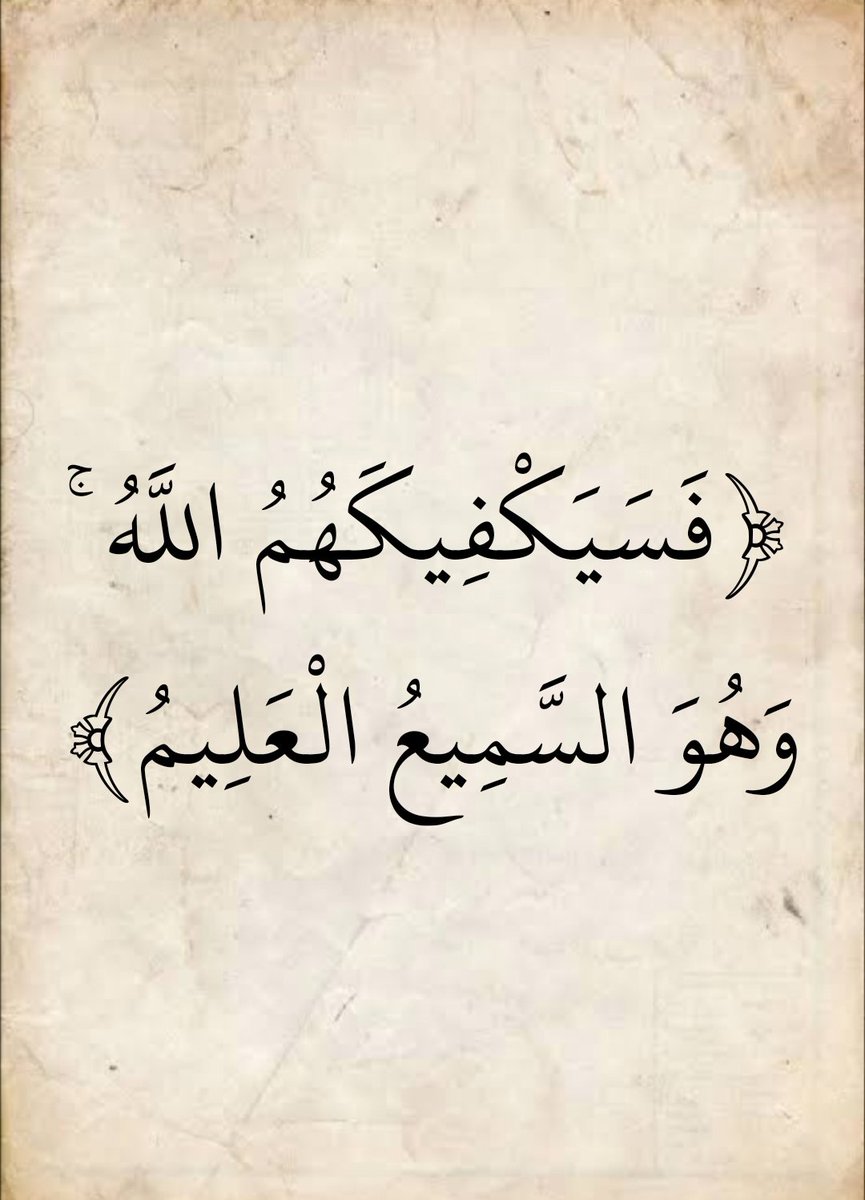 ﴿ فَسَيَكْفِيكَهُمُ اللَّهُ ۚ
وَهُوَ السَّمِيعُ الْعَلِيمُ﴾